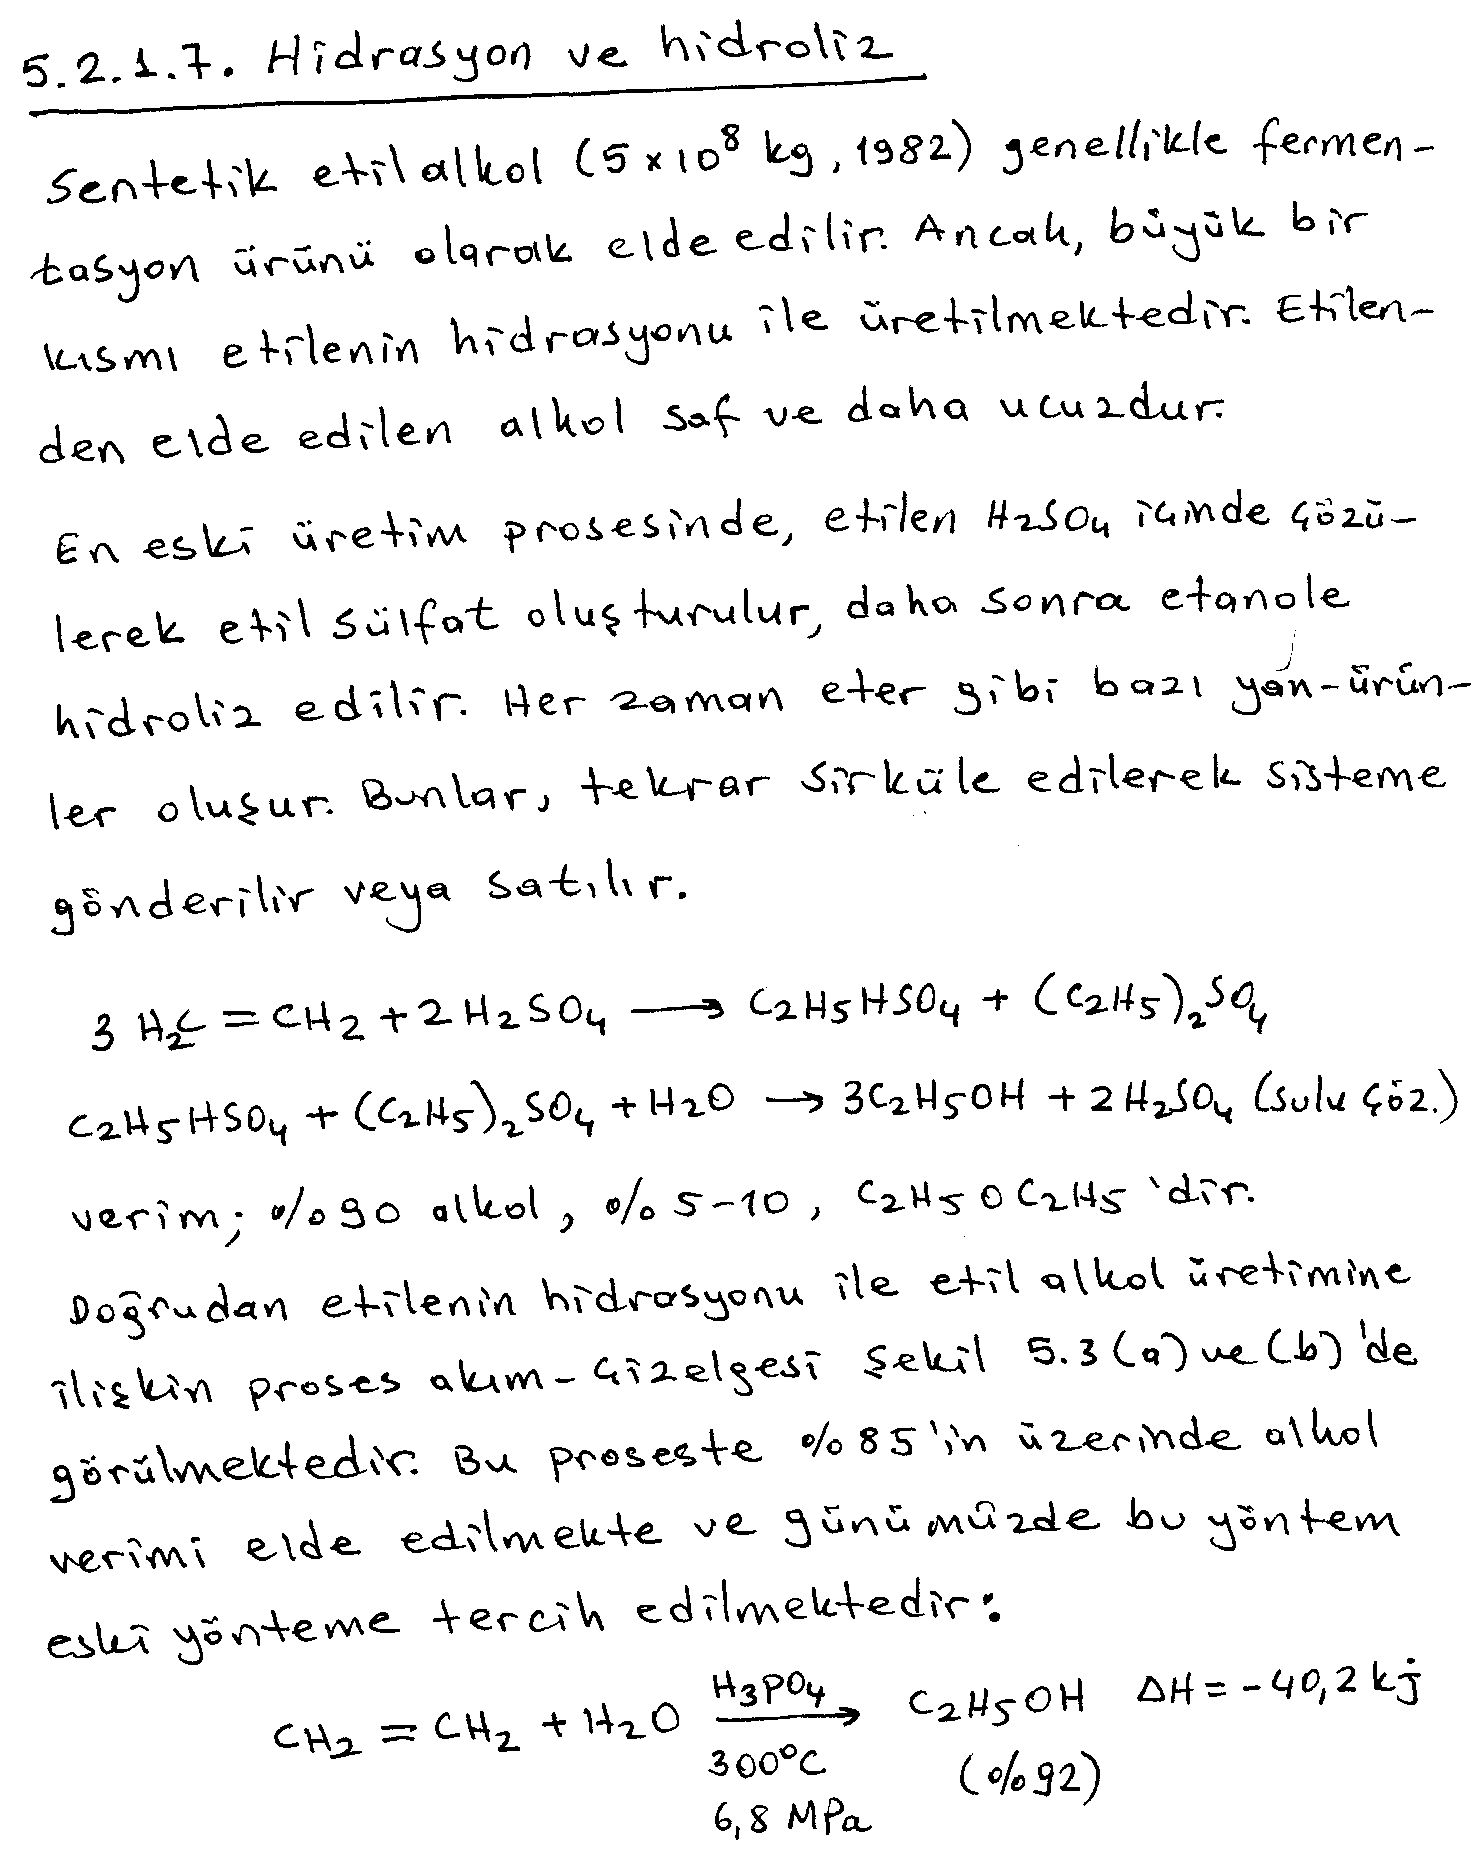 5.2.1.7. Hidrasyon ve hidroliz
Sentetik etil alkol (5 x 10⁸ kg, 1982) genellikle fermen-
tasyon ürünü olarak elde edilir. Ancak, büyük bir
kısmı etilenin hidrasyonu ile üretilmektedir. Etilen-
den elde edilen alkol saf ve daha ucuzdur.
En eski üretim prosesinde, etilen H₂SO₄ içinde çözü-
lerek etil sülfat oluşturulur, daha sonra etanole
hidroliz edilir. Her zaman eter gibi bazı yan-ürün-
ler oluşur. Bunlar, tekrar sirküle edilerek sisteme
gönderilir veya satılır.
3 H₂C = CH₂ + 2 H₂SO₄ → C₂H₅HSO₄ + (C₂H₅)₂SO₄
C₂H₅HSO₄ + (C₂H₅)₂SO₄ + H₂O → 3C₂H₅OH + 2 H₂SO₄ (sulu çöz.)
verim; %90 alkol, % 5-10, C₂H₅OC₂H₅ 'dir.
Doğrudan etilenin hidrasyonu ile etil alkol üretimine
ilişkin proses akım-çizelgesi Şekil 5.3 (a) ve (b) 'de
görülmektedir. Bu proseste %85'in üzerinde alkol
verimi elde edilmekte ve günümüzde bu yöntem
eski yönteme tercih edilmektedir:
CH₂ = CH₂ + H₂O H₃PO₄ → C₂H₅OH ΔH = -40,2 kj
300°C (%92)
6,8 MPa